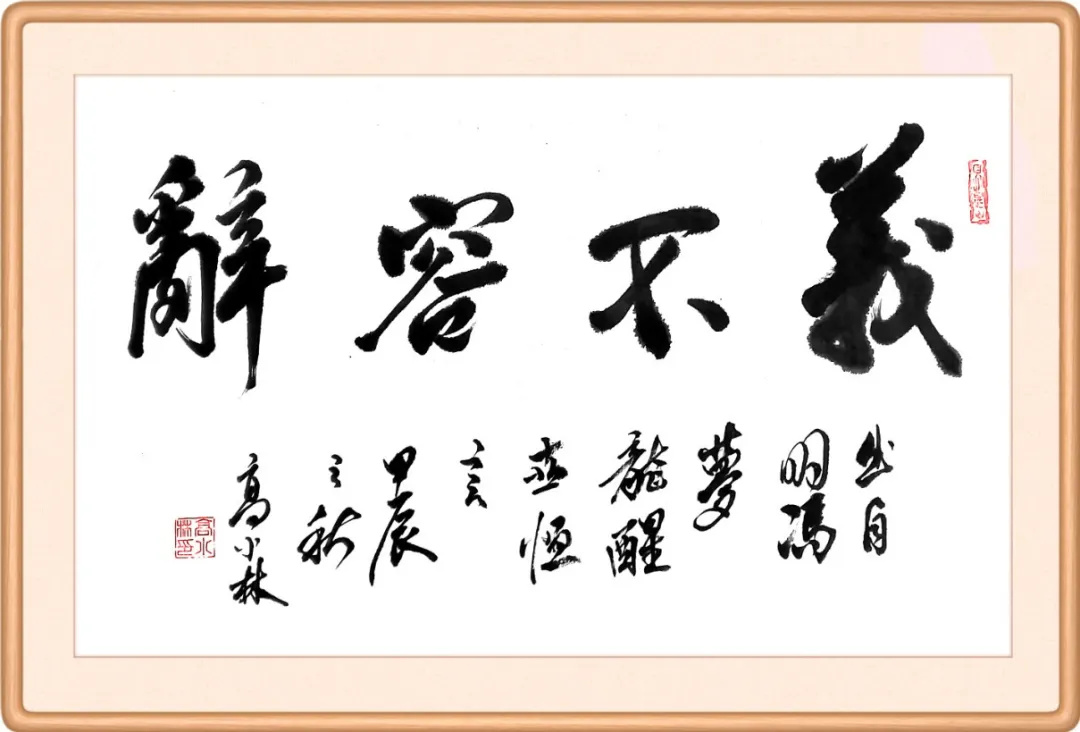 義不容辭
出自
明馮
夢
龍醒
世恒
言
甲辰
之秋
高小林